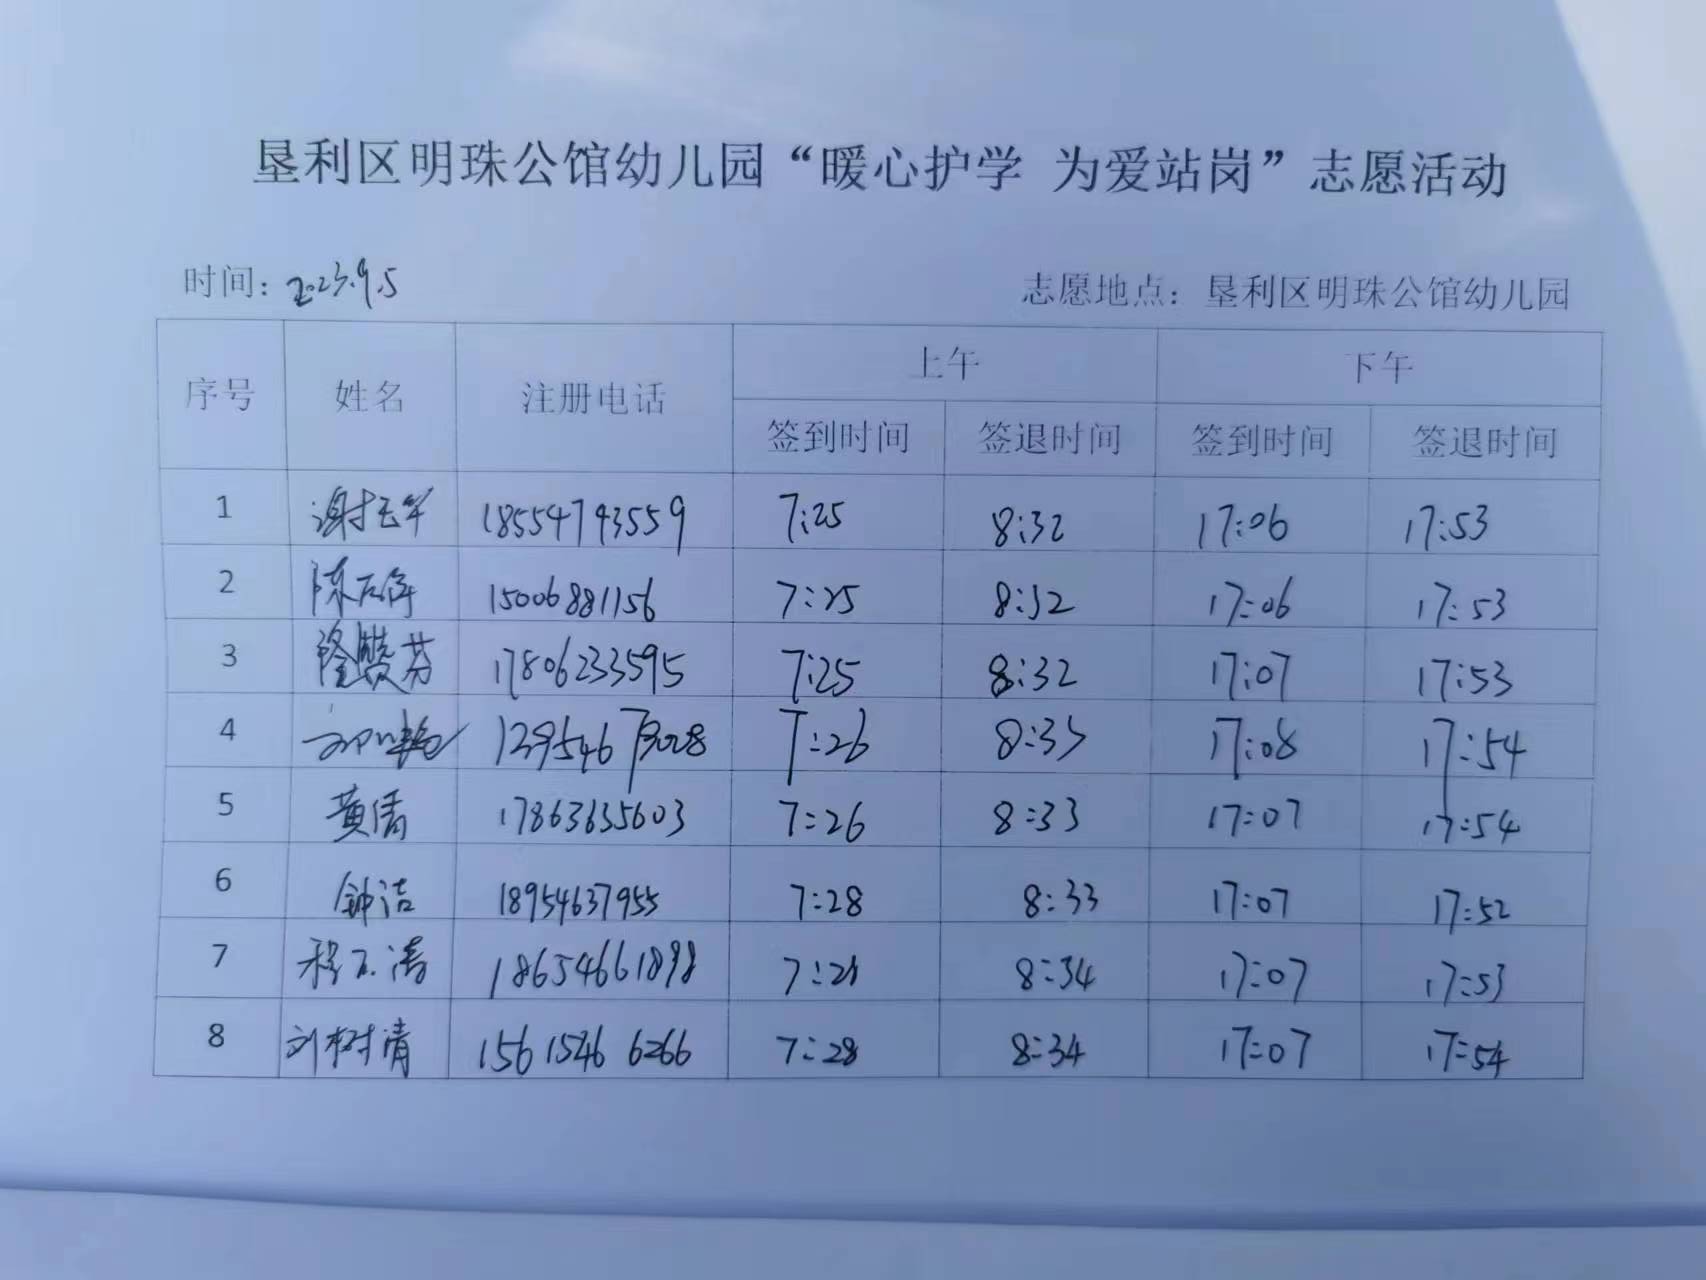 垦利区明珠公馆幼儿园“暖心护学 为爱站岗”志愿活动
时间：2023.9.5 志愿地点：垦利区明珠公馆幼儿园
序号 姓名 注册电话 上午 下午
签到时间 签退时间 签到时间 签退时间
1 18554793559 7:25 8:32 17:06 17:53
2 15006881156 7:25 8:32 17:06 17:53
3 17806233595 7:25 8:32 17:07 17:53
4 7:26 8:33 17:08 17:54
5 黄倩 17863635603 7:26 8:33 17:07 17:54
6 钟洁 18954637955 7:28 8:33 17:07 17:52
7 18654661898 8:34 17:07 17:53
8 刘树清 15615466266 7:28 8:34 17:07 17:54